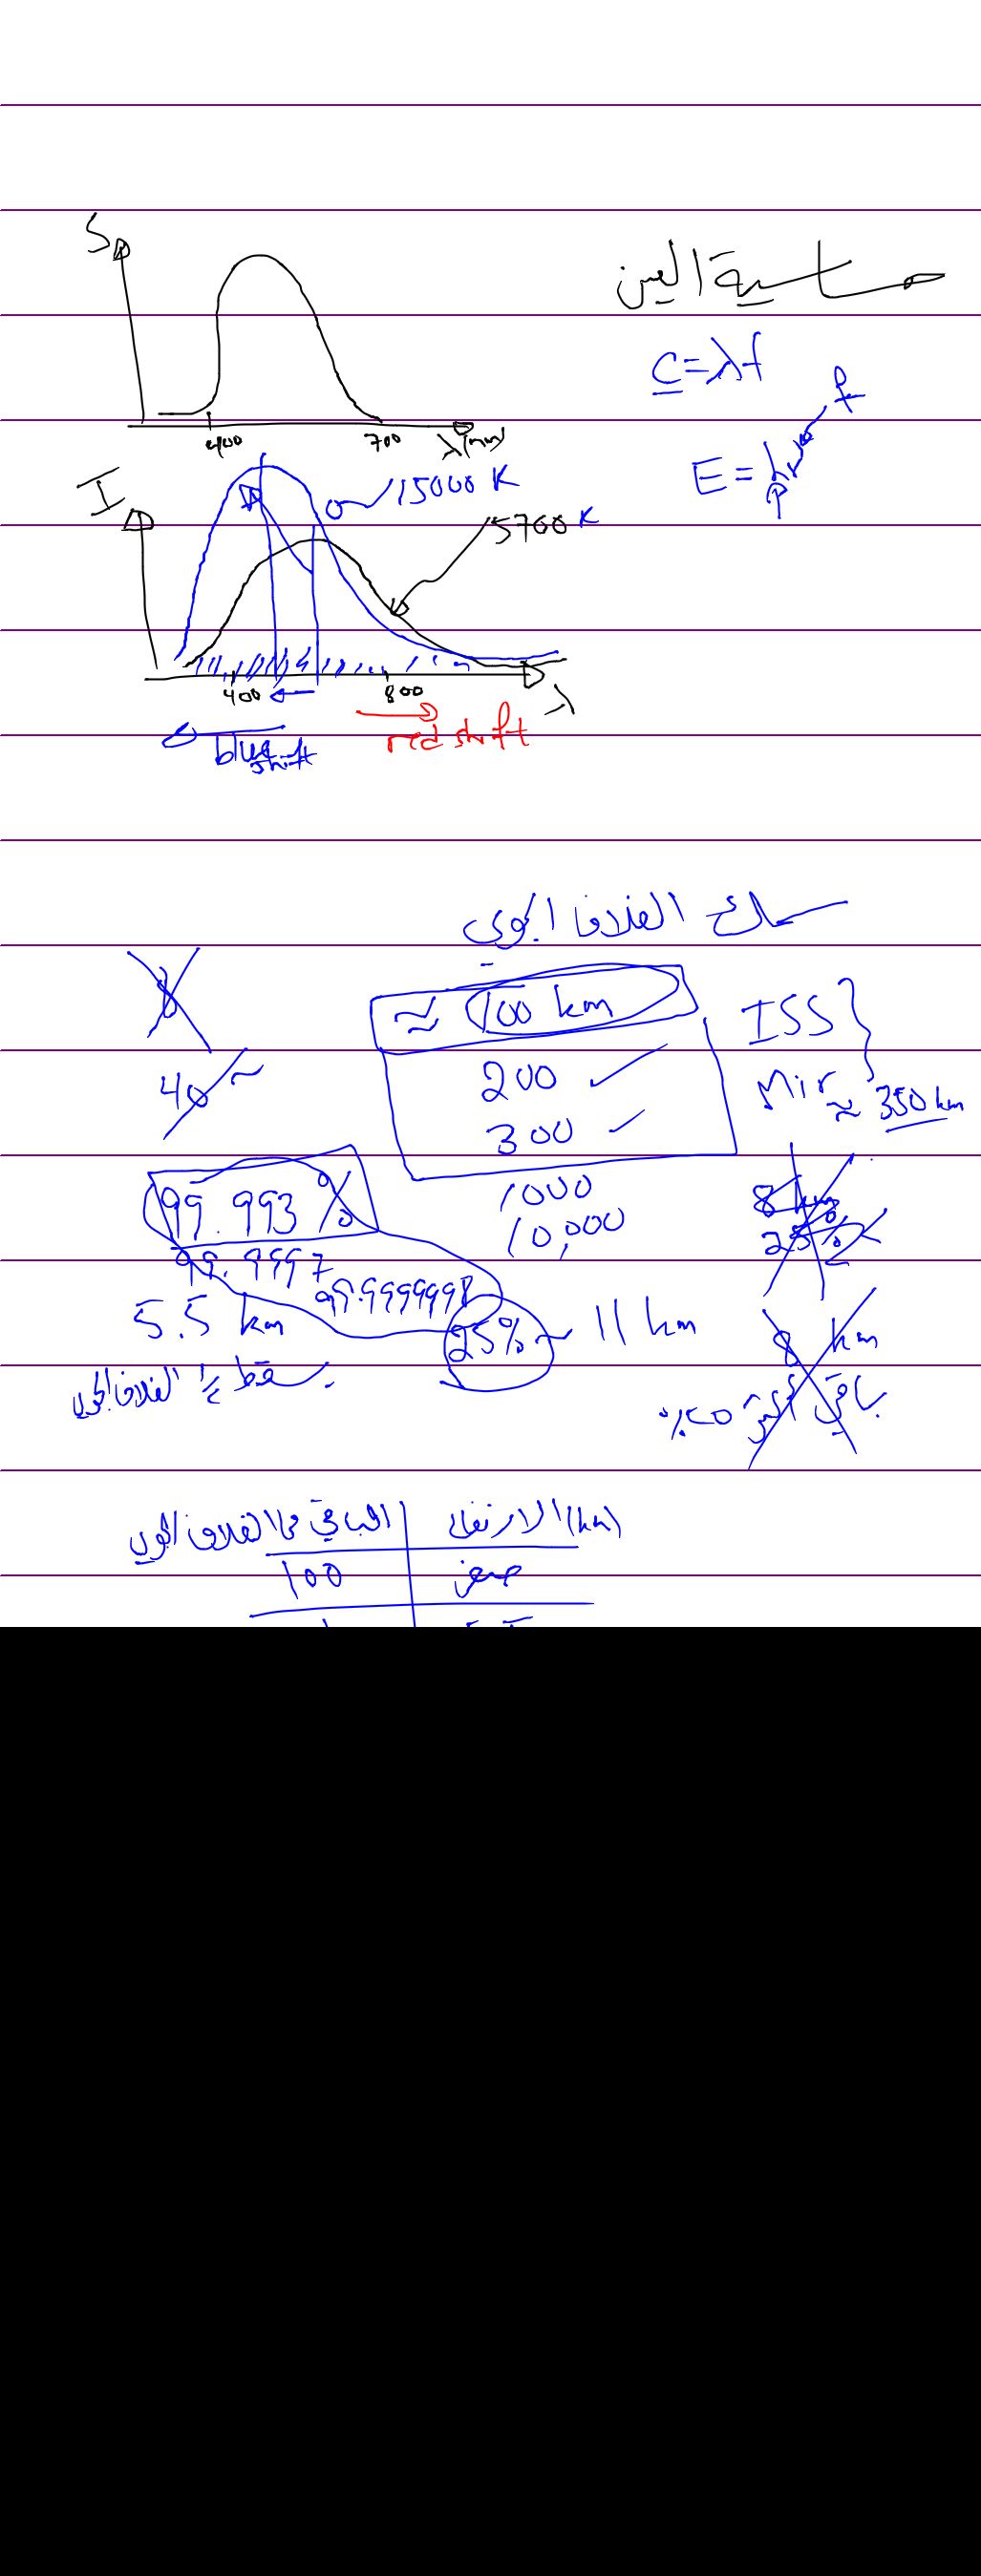 S
حساسية العين
c=λf
400 700 λ(nm)
E = hν f
I
15000 K
5700 K
400 800 λ
blue shift
red shift
سمك الغلاف الجوي
≈ 100 km
ISS
40~
200 ✓
Mir ≈ 350 km
300 ✓
99.993 %
1000
8 km
10,000
25%
99.9997
99.9999998
5.5 km
25% ~ 11 km
8 km
الغلاف الجوي
باقي %50
الارتفاع (km) الباقي من الغلاف الجوي
صفر 100